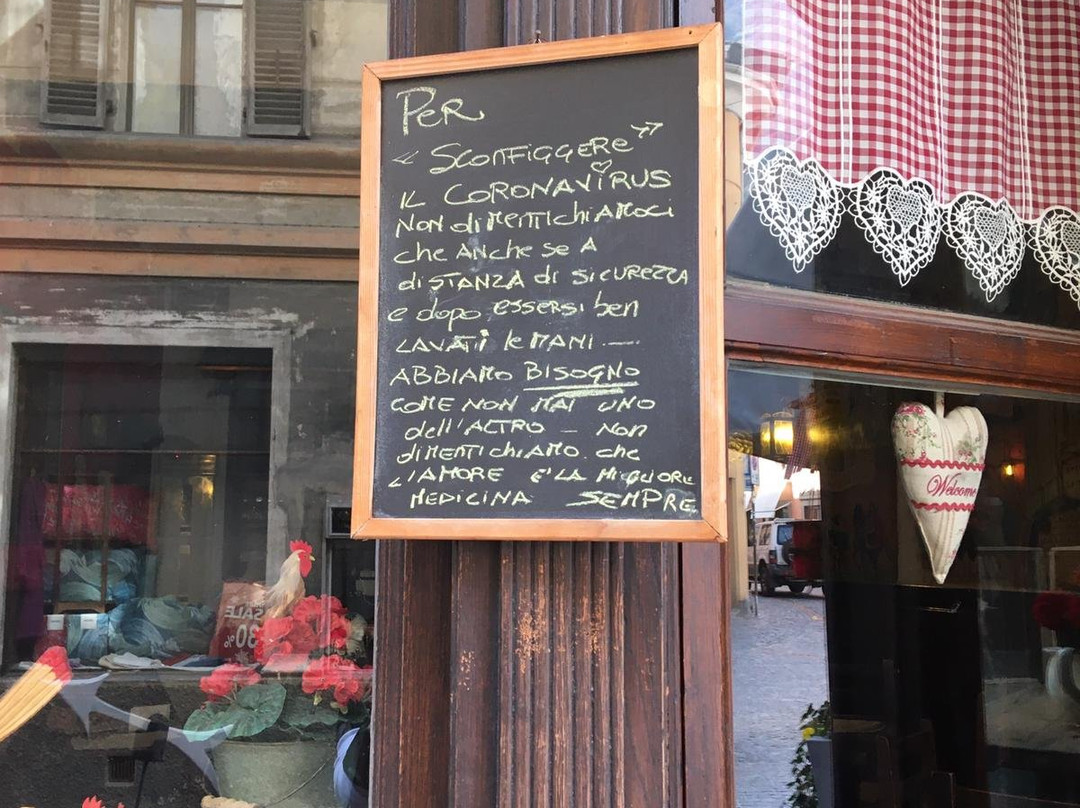 PER
"SCONFIGGERE"
IL CORONAVIRUS
NON diMENTICHIAMOCI
che ANCHE se A
diSTANZA di SICUREZZA
e dopo essersi ben
LAVATi le MANI —
ABBIAMO BISOGNO
COME NON MAI UNO
dell'ALTRO — NON
diMENTICHIAMO che
L'AMORE E' LA MIGLIORE
MEDICINA SEMPRE
Welcome
SALE
30%